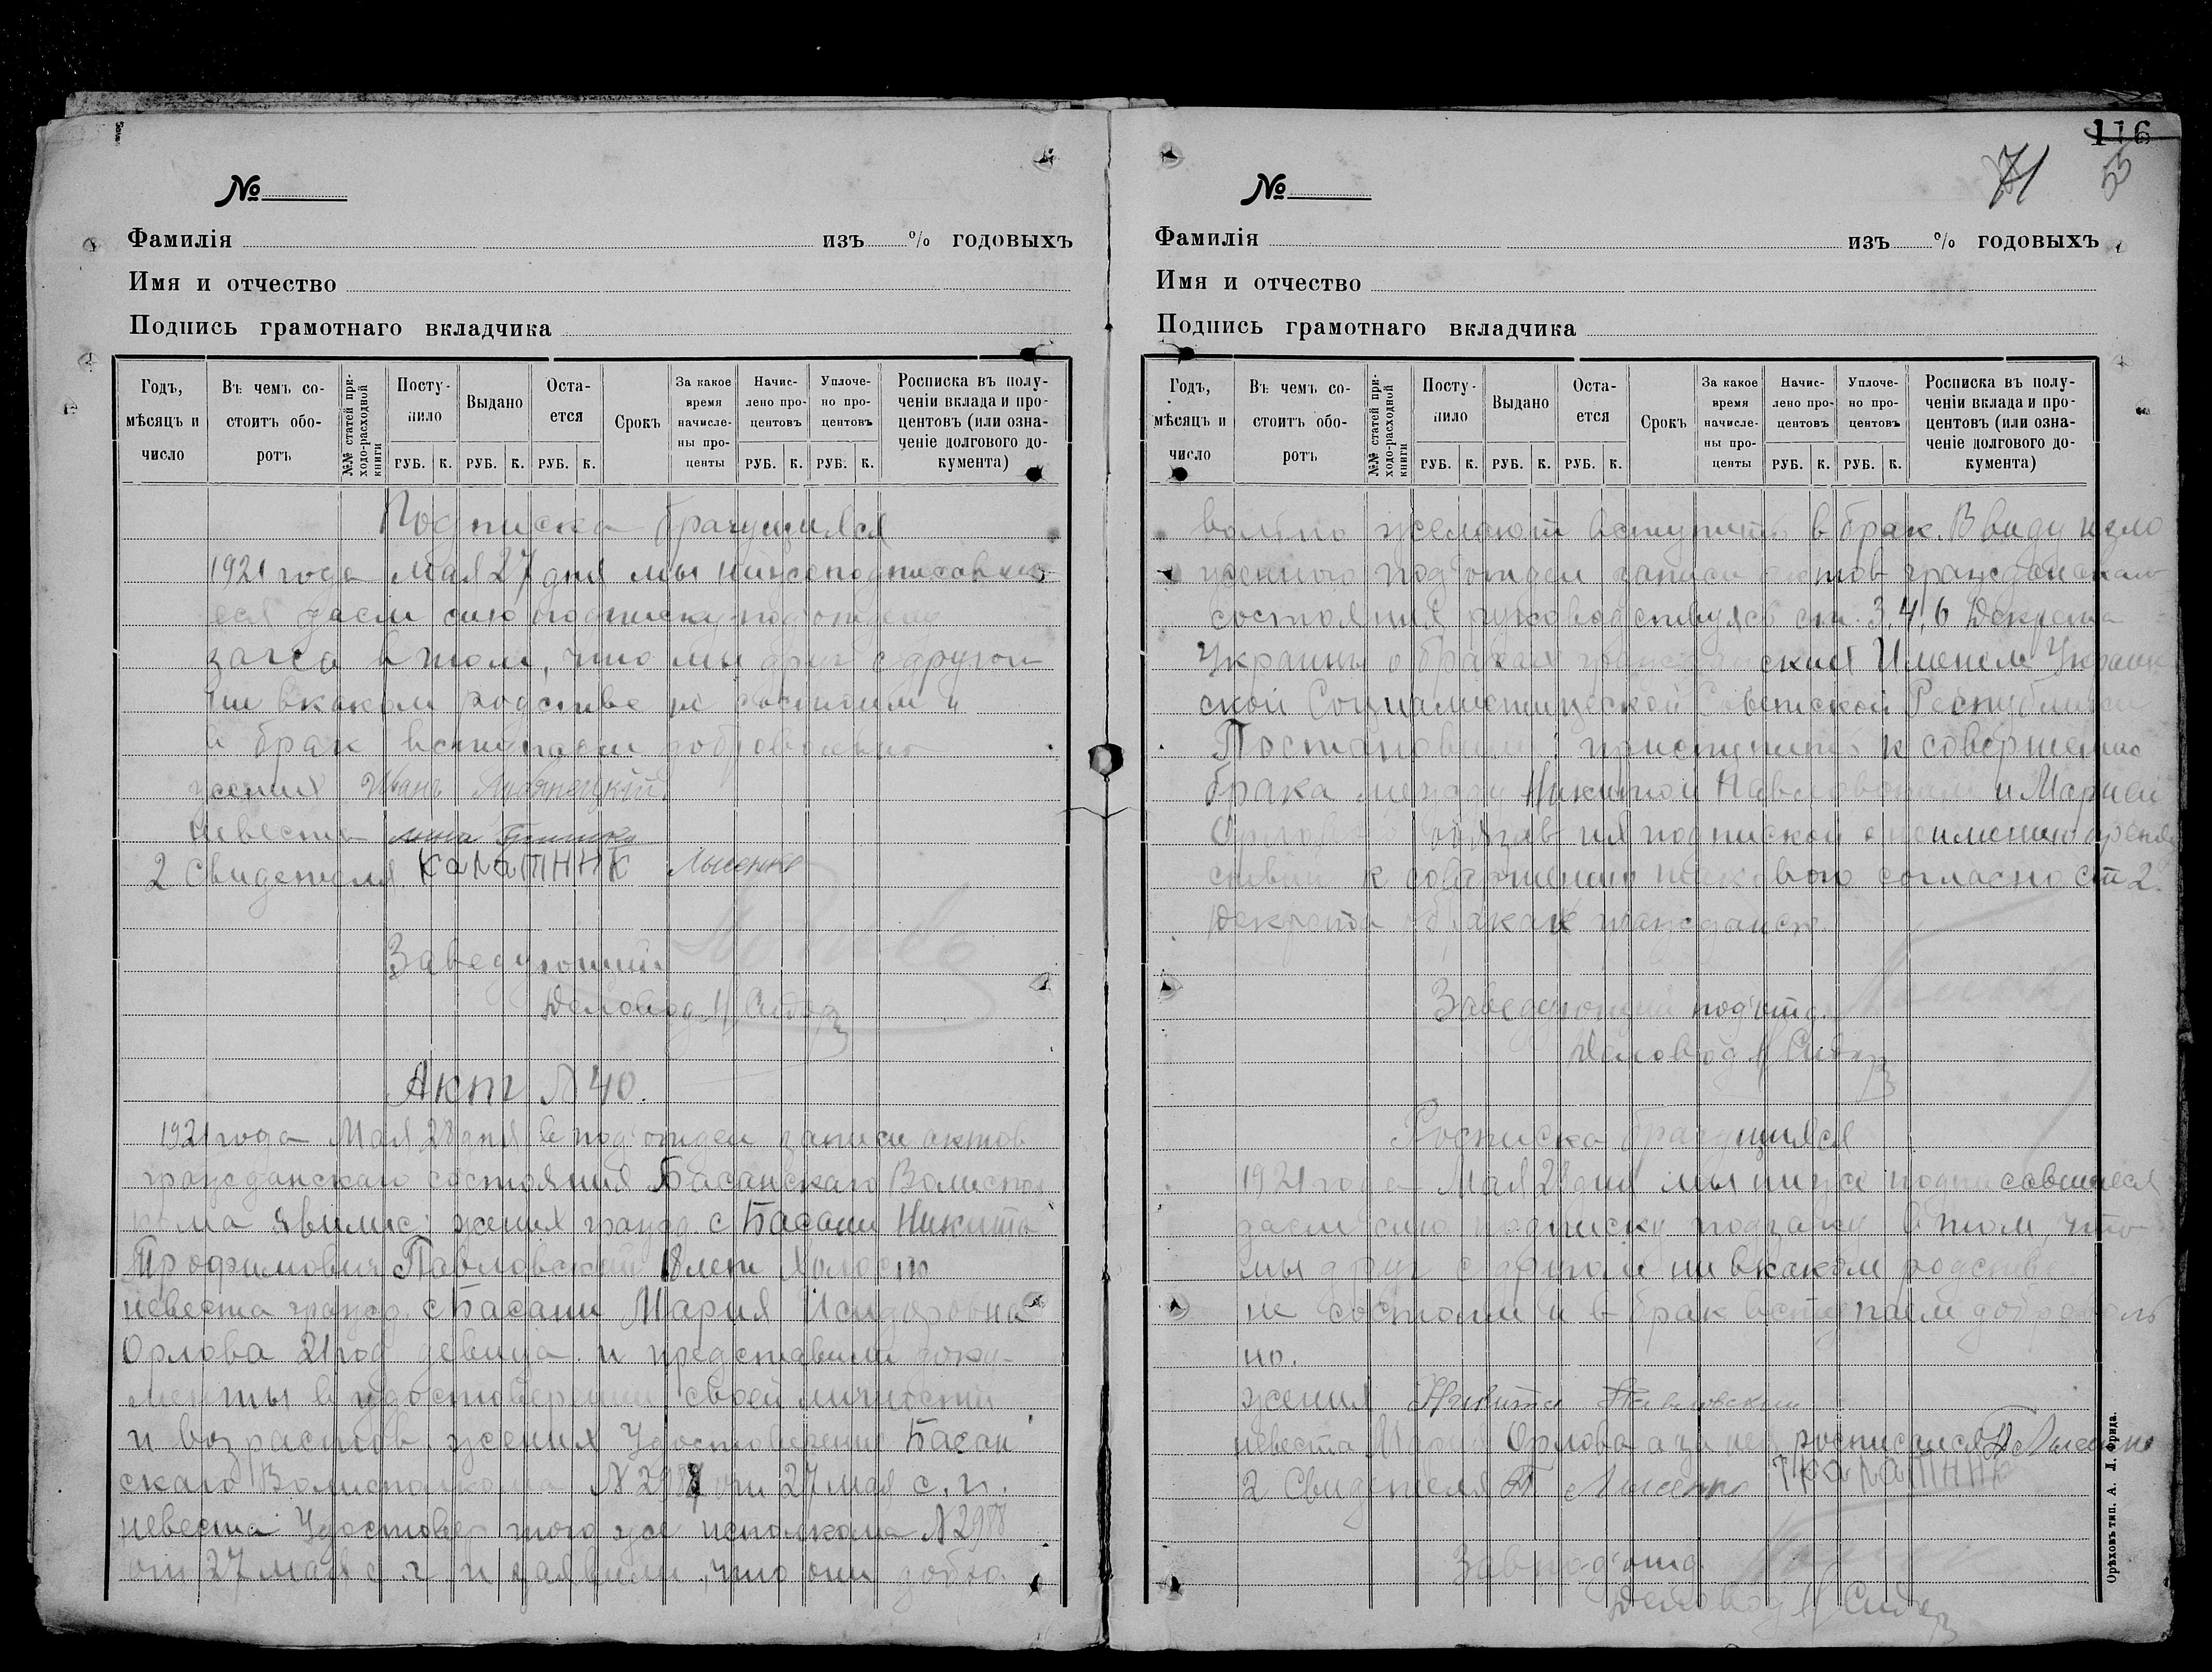 №
Фамилія изъ % годовыхъ
Имя и отчество
Подпись грамотнаго вкладчика
Годъ, мѣсяцъ и число
Въ чемъ состоитъ оборотъ
№№ статей приходо-расходной книги
Поступило
Выдано
Остается
Срокъ
За какое время начислены проценты
Начислено процентовъ
Уплочено процентовъ
Росписка въ полученіи вклада и процентовъ (или означеніе долгового документа)
РУБ. К. РУБ. К. РУБ. К. РУБ. К. РУБ. К.
Подписка брачущихся
1921 года Мая 27 дня мы нижеподписавши
еся дали сию подписку под'отделу
загса в том, что мы друг с другом
ни в каком родстве не состоим и
в брак вступаем добровольно
жених Иван
невеста Анна
2 Свидетеля Калатник Лысенко
Заведующий
Деловод
Акт № 40.
1921 года Мая 28 дня в под'отдел записи актов
гражданскаго состояния Басанскаго Волиспол
кома явились: жених гражд. с Басани Никита
Трофимович Павловский 18 лет холост
невеста гражд. с Басани Мария Исидоровна
Орлова 21 год девица и представили доку-
менты в удостоверении своей личности
и возрастов. жених Удостоверение Басан
скаго Волисполкома № 2987 от 27 мая с. г.
невеста Удостовер того же исполкома № 2988
от 27 мая с. г. и заявили, что они добро
116
71
55
№
Фамилія изъ % годовыхъ
Имя и отчество
Подпись грамотнаго вкладчика
Годъ, мѣсяцъ и число
Въ чемъ состоитъ оборотъ
№№ статей приходо-расходной книги
Поступило
Выдано
Остается
Срокъ
За какое время начислены проценты
Начислено процентовъ
Уплочено процентовъ
Росписка въ полученіи вклада и процентовъ (или означеніе долгового документа)
РУБ. К. РУБ. К. РУБ. К. РУБ. К. РУБ. К.
вольно желают вступить в брак. В виду изло
женного под'отдел записи актов гражданскаго
состояния руководствуясь ст. 3, 4, 6 Декрета
Украины о браках гражданских Именем Украин
ской Социалистической Советской Республики
Постановил: приступить к совершению
брака между Никитой Павловским и Марией
Орловой обязав их подпиской о неимении препят
ствий к совершению такового согласно ст 2.
Декрета о браках гражданск.
Заведующий под'отд.
Деловод
Росписка брачущихся
1921 года Мая 28 дня мы ниже подписавшиеся
дали сию подписку подзагсу в том, что
мы друг с другом ни в каком родстве
не состоим и в брак вступаем доброволь
но.
жених Никита Павловский
невеста Мария Орлова а за нея росписался Лысенко
2 Свидетеля Лысенко Калатник
Завпод'отд.
Деловод
Орѣховъ тип. А. Л. Фрида.